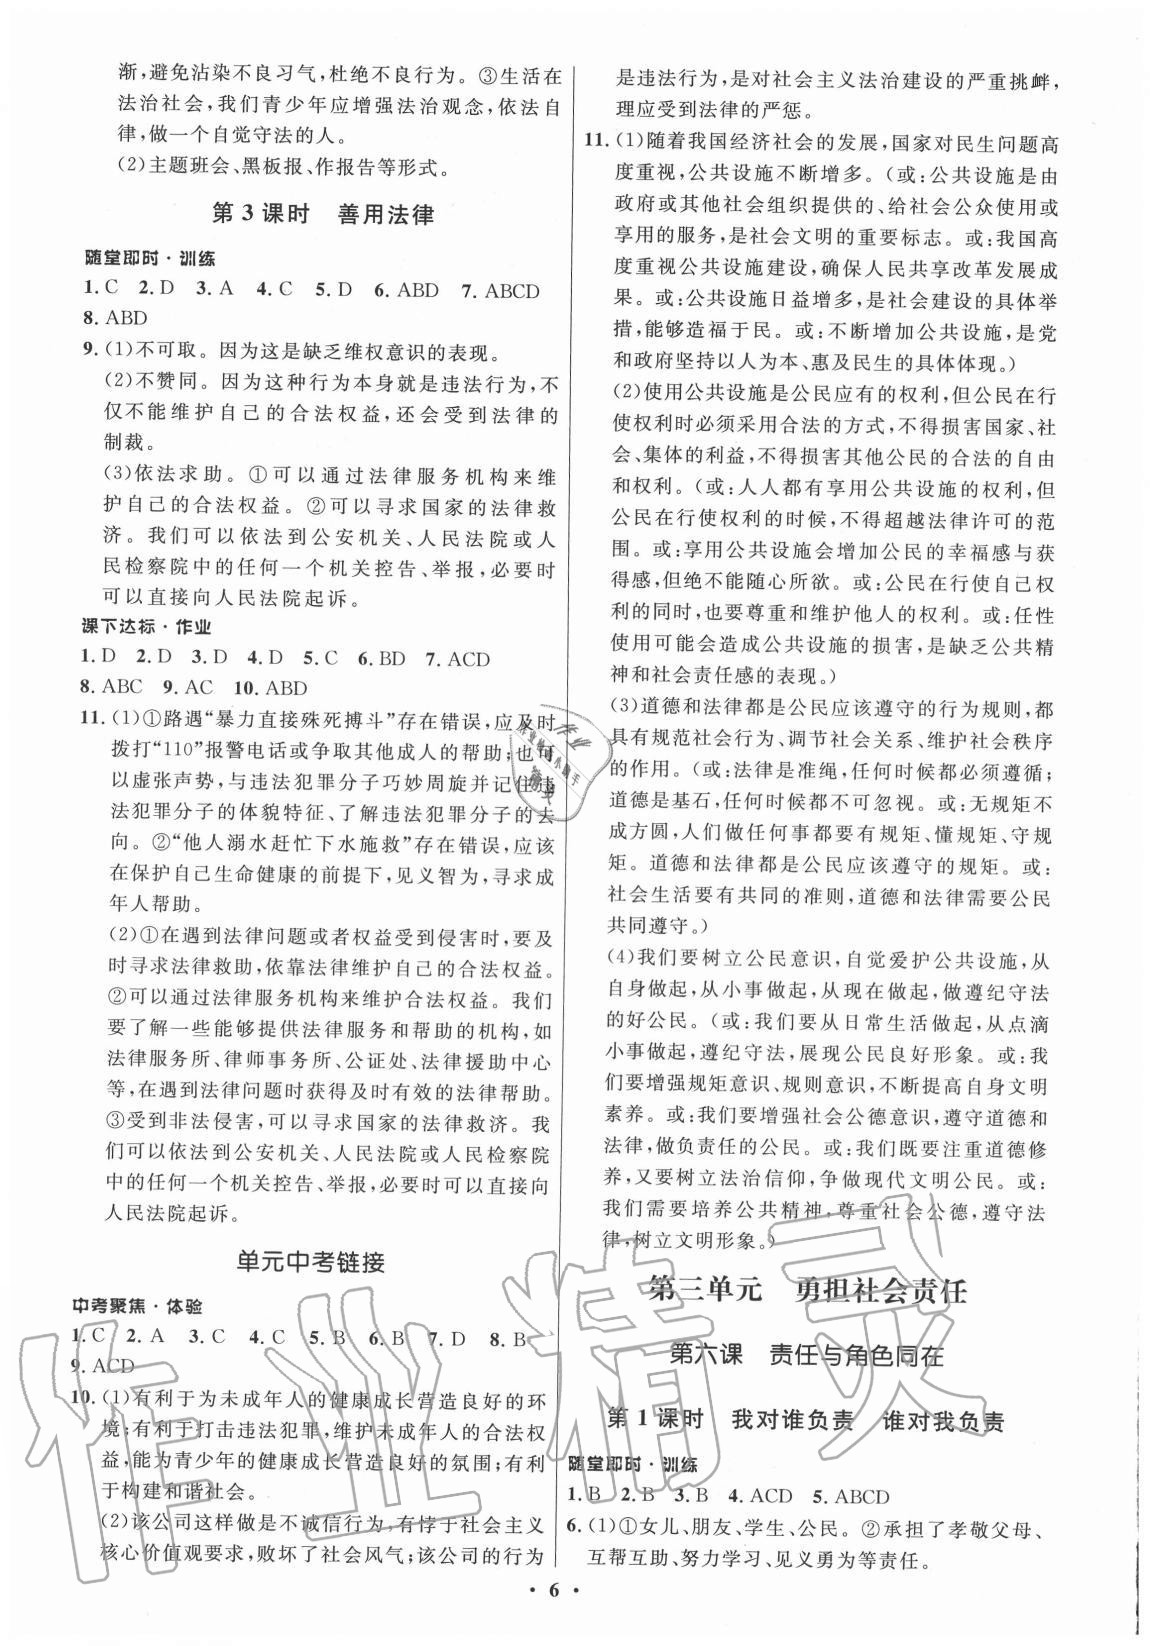 渐，避免沾染不良习气，杜绝不良行为。③生活在
法治社会，我们青少年应增强法治观念，依法自
律，做一个自觉守法的人。
(2)主题班会、黑板报、作报告等形式。
第 3 课时　善用法律
随堂即时·训练
1. C　2. D　3. A　4. C　5. D　6. ABD　7. ABCD
8. ABD
9. (1)不可取。因为这是缺乏维权意识的表现。
(2)不赞同。因为这种行为本身就是违法行为，不
仅不能维护自己的合法权益，还会受到法律的
制裁。
(3)依法求助。①可以通过法律服务机构来维
护自己的合法权益。②可以寻求国家的法律救
济。我们可以依法到公安机关、人民法院或人
民检察院中的任何一个机关控告、举报，必要时
可以直接向人民法院起诉。
课下达标·作业
1. D　2. D　3. D　4. D　5. C　6. BD　7. ACD
8. ABC　9. AC　10. ABD
11. (1)①路遇“暴力直接殊死搏斗”存在错误，应及时
拨打“110”报警电话或争取其他成人的帮助；也可
以虚张声势，与违法犯罪分子巧妙周旋并记住违
法犯罪分子的体貌特征、了解违法犯罪分子的去
向。②“他人溺水赶忙下水施救”存在错误，应该
在保护自己生命健康的前提下，见义智为，寻求成
年人帮助。
(2)①在遇到法律问题或者权益受到侵害时，要及
时寻求法律救助，依靠法律维护自己的合法权益。
②可以通过法律服务机构来维护合法权益。我们
要了解一些能够提供法律服务和帮助的机构，如
法律服务所、律师事务所、公证处、法律援助中心
等，在遇到法律问题时获得及时有效的法律帮助。
③受到非法侵害，可以寻求国家的法律救济。我
们可以依法到公安机关、人民法院或人民检察院
中的任何一个机关控告、举报，必要时可以直接向
人民法院起诉。
单元中考链接
中考聚焦·体验
1. C　2. A　3. C　4. C　5. B　6. B　7. D　8. B
9. ACD
10. (1)有利于为未成年人的健康成长营造良好的环
境；有利于打击违法犯罪，维护未成年人的合法权
益，能为青少年的健康成长营造良好的氛围；有利
于构建和谐社会。
(2)该公司这样做是不诚信行为，有悖于社会主义
核心价值观要求，败坏了社会风气；该公司的行为
是违法行为，是对社会主义法治建设的严重挑衅，
理应受到法律的严惩。
11. (1)随着我国经济社会的发展，国家对民生问题高
度重视，公共设施不断增多。(或：公共设施是由
政府或其他社会组织提供的、给社会公众使用或
享用的服务，是社会文明的重要标志。或：我国高
度重视公共设施建设，确保人民共享改革发展成
果。或：公共设施日益增多，是社会建设的具体举
措，能够造福于民。或：不断增加公共设施，是党
和政府坚持以人为本、惠及民生的具体体现。)
(2)使用公共设施是公民应有的权利，但公民在行
使权利时必须采用合法的方式，不得损害国家、社
会、集体的利益，不得损害其他公民的合法的自由
和权利。(或：人人都有享用公共设施的权利，但
公民在行使权利的时候，不得超越法律许可的范
围。或：享用公共设施会增加公民的幸福感与获
得感，但绝不能随心所欲。或：公民在行使自己权
利的同时，也要尊重和维护他人的权利。或：任性
使用可能会造成公共设施的损害，是缺乏公共精
神和社会责任感的表现。)
(3)道德和法律都是公民应该遵守的行为规则，都
具有规范社会行为、调节社会关系、维护社会秩序
的作用。(或：法律是准绳，任何时候都必须遵循；
道德是基石，任何时候都不可忽视。或：无规矩不
成方圆，人们做任何事都要有规矩、懂规矩、守规
矩。道德和法律都是公民应该遵守的规矩。或：
社会生活要有共同的准则，道德和法律需要公民
共同遵守。)
(4)我们要树立公民意识，自觉爱护公共设施，从
自身做起，从小事做起，从现在做起，做遵纪守法
的好公民。(或：我们要从日常生活做起，从点滴
小事做起，遵纪守法，展现公民良好形象。或：我
们要增强规矩意识、规则意识，不断提高自身文明
素养。或：我们要增强社会公德意识，遵守道德和
法律，做负责任的公民。或：我们既要注重道德修
养，又要树立法治信仰，争做现代文明公民。或：
我们需要培养公共精神，尊重社会公德，遵守法
律，树立文明形象。)
第三单元　勇担社会责任
第六课　责任与角色同在
第 1 课时　我对谁负责　谁对我负责
随堂即时·训练
1. B　2. B　3. B　4. ACD　5. ABCD
6. (1)①女儿、朋友、学生、公民。②承担了孝敬父母、
互帮互助、努力学习、见义勇为等责任。
· 6 ·
作业精灵